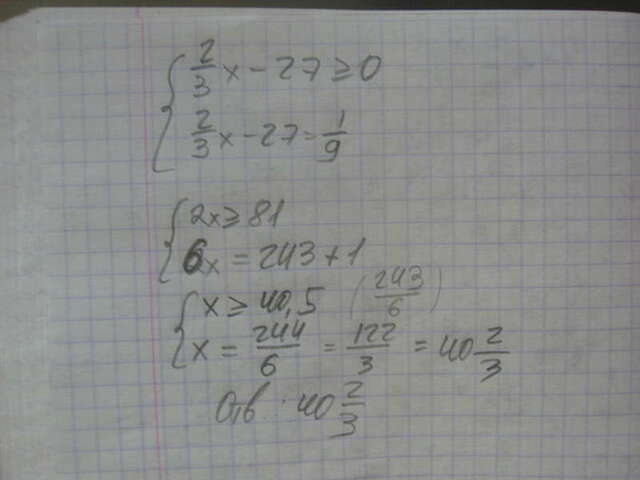 { 2/3 x - 27 ≥ 0
2/3 x - 27 = 1/9
{ 2x ≥ 81
6x = 243 + 1
{ x ≥ 40,5 (243/6)
x = 244/6 = 122/3 = 40 2/3
Отв: 40 2/3